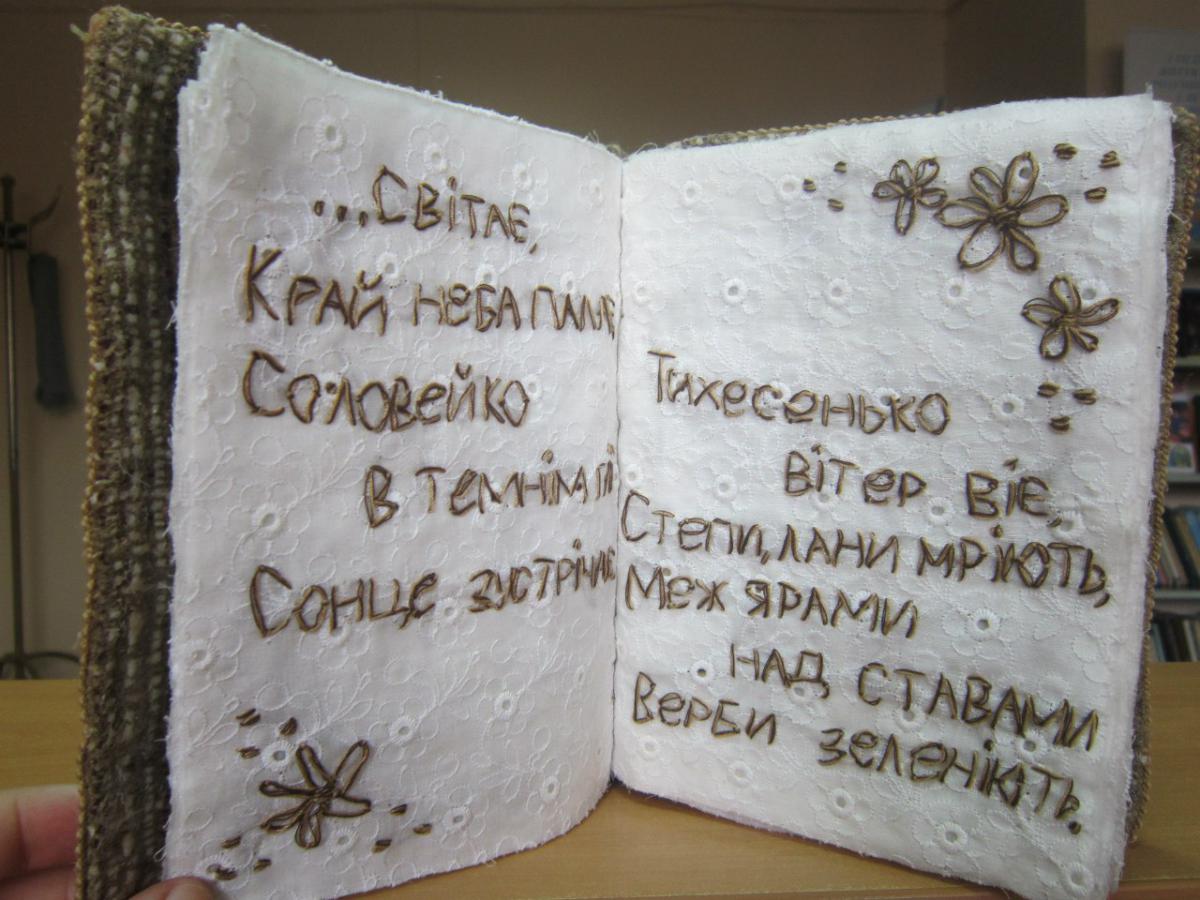 ...Світає,
Край неба палає,
Соловейко
в темнім гаї
Сонце зустрічає
Тихесенько
вітер віє,
Степи, лани мріють,
Меж ярами
над ставами
Верби зеленіють.